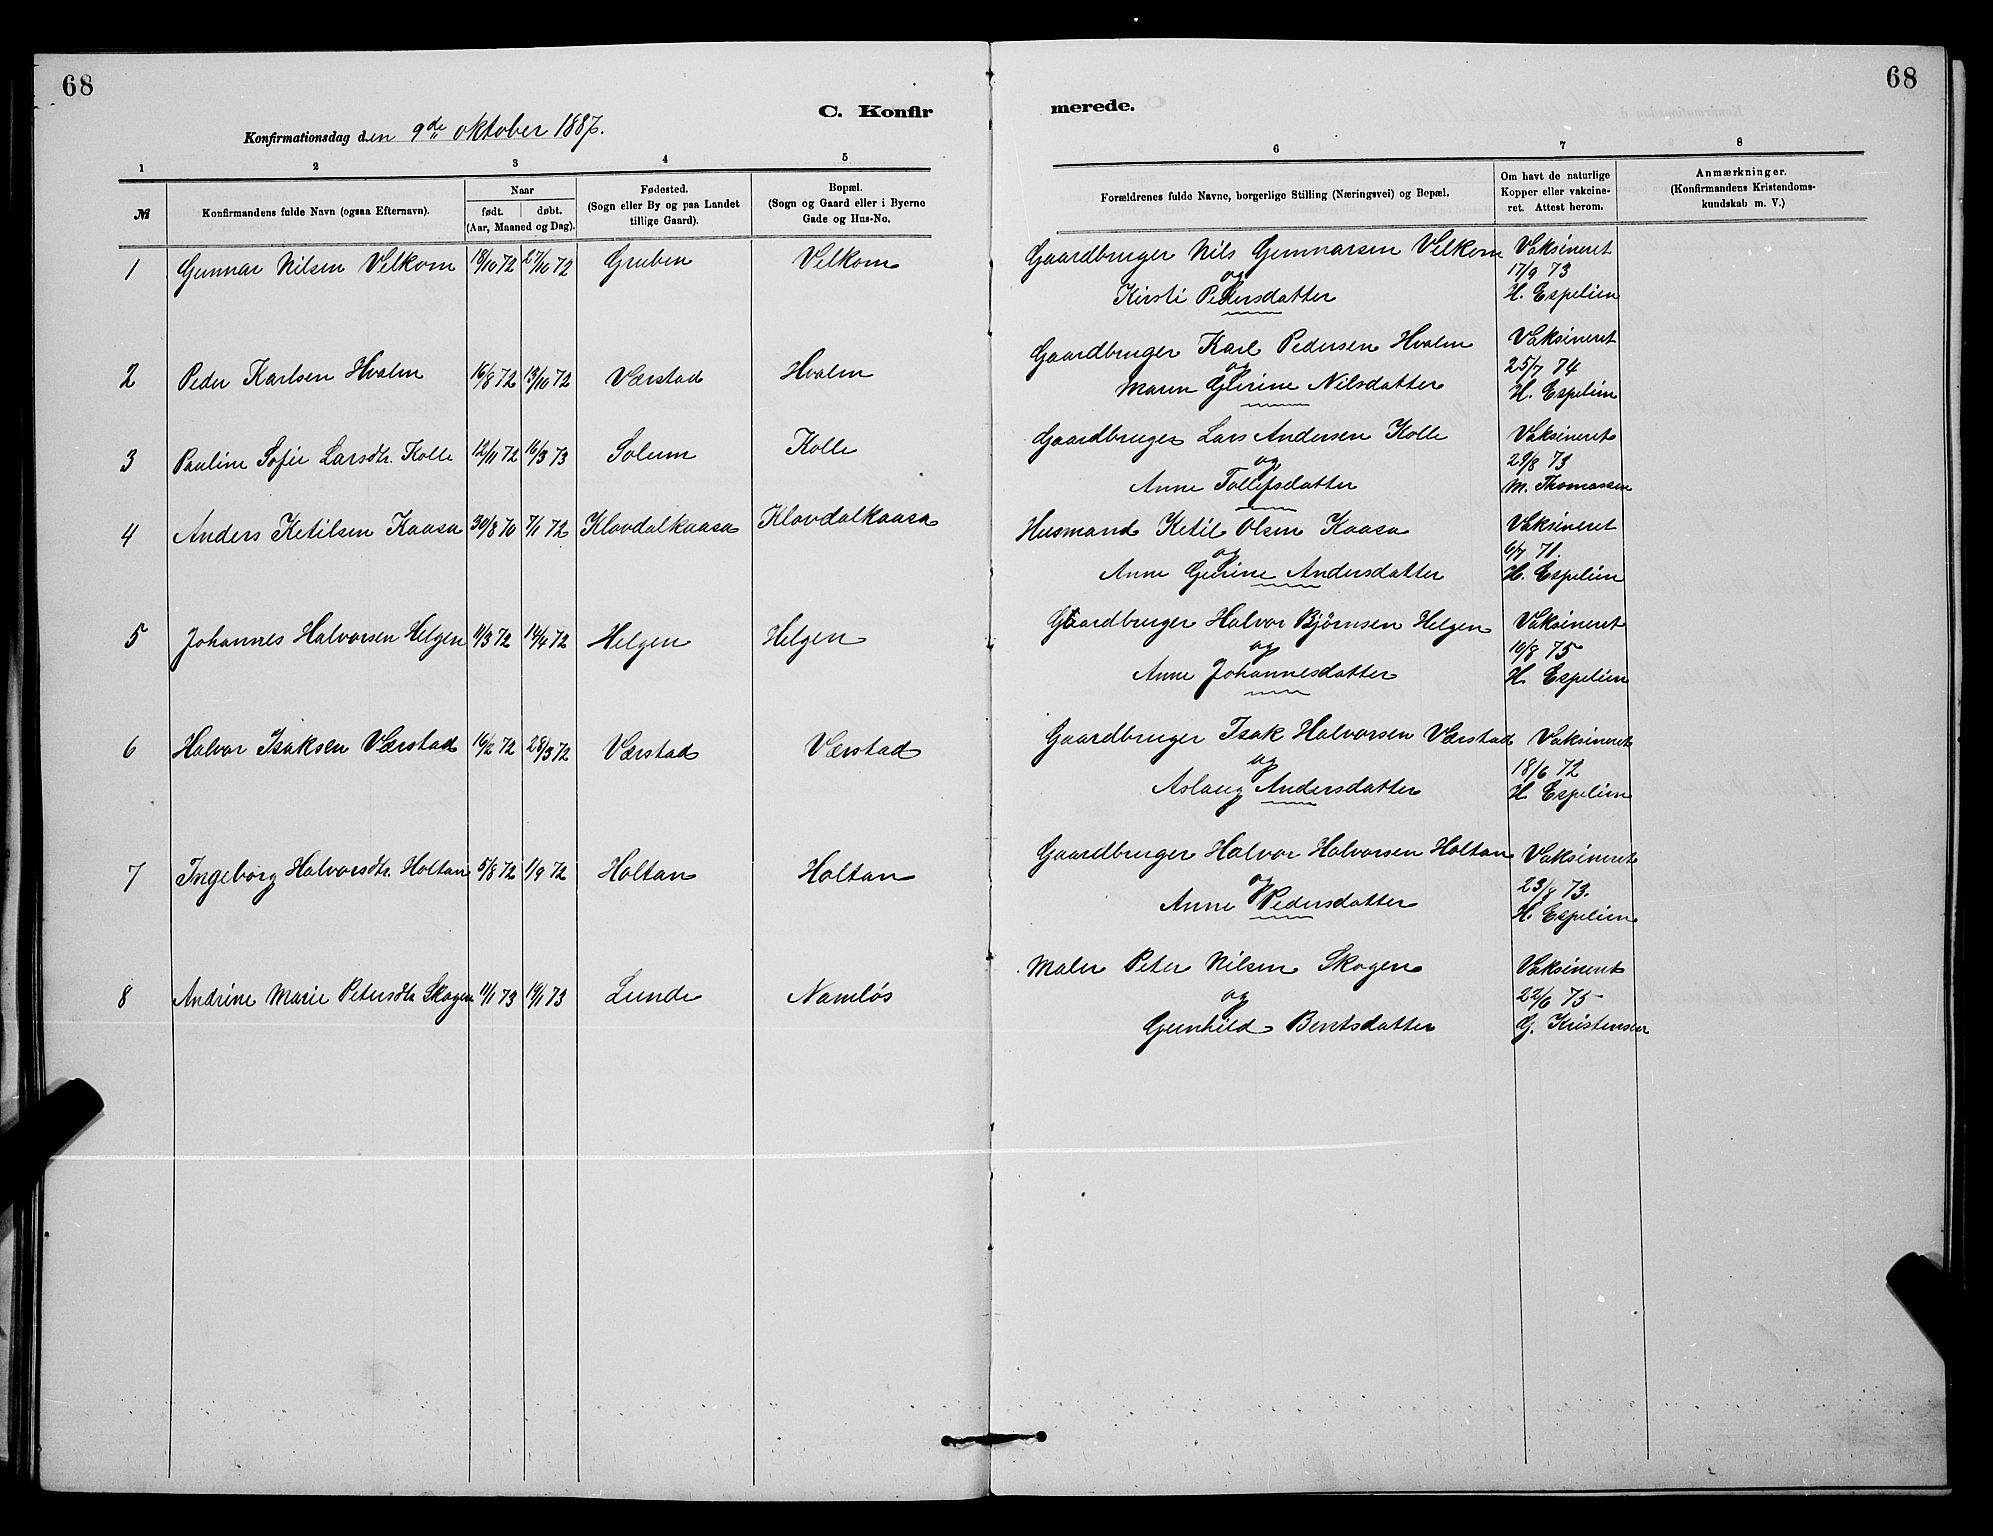 68
68
C. Konfir
merede.
Konfirmationsdag den 9de oktober 1887.
1 2 3 4 5
6 7 8
№ Konfirmandens fulde Navn (ogsaa Efternavn). Naar født. døbt. (Aar, Maaned og Dag). Fødested. (Sogn eller By og paa Landet tillige Gaard). Bopæl. (Sogn og Gaard eller i Byerne Gade og Hus-No.
Forældrenes fulde Navne, borgerlige Stilling (Næringsvei) og Bopæl. Om havt de naturlige Kopper eller vakcineret. Attest herom. Anmærkninger. (Konfirmandens Kristendomskundskab m. V.)
1 Gunnar Nilsen Velkom 18/10 72 27/10 72 Gruben Velkom
Gaardbruger Nils Gunnarsen Velkom Vaksineret
og 17/9 73
Kirsti Pedersdatter H. Espelien
2 Peder Karlsen Hvalm 16/8 72 13/10 72 Værstad Hvalm
Gaardbruger Karl Pedersen Hvalm Vaksineret
og 25/7 74
Maren Gurine Nilsdatter H. Espelien
3 Pauline Sofie Larsdtr. Kolle 12/11 72 16/3 73 Solum Kolle
Gaardbruger Lars Andersen Kolle Vaksineret
og 29/8 73
Anne Tollefsdatter M. Thomassen
4 Anders Ketilsen Kaasa 30/8 70 7/1 72 Klovdalkaasa Klovdalkaasa
Husmand Ketil Olsen Kaasa Vaksineret
og 6/7 71.
Anne Gurine Andersdatter H. Espelien
5 Johannes Halvorsen Helgen 11/3 72 14/4 72 Helgen Helgen
Gaardbruger Halvor Bjørnsen Helgen Vaksineret
og 10/8 75
Anne Johannesdatter H. Espelien
6 Halvor Isaksen Værstad 16/2 72 28/3 72 Værstad Værstad
Gaardbruger Isak Halvorsen Værstad Vaksineret
og 18/6 72
Aslaug Andersdatter H. Espelien
7 Ingeborg Halvorsdtr. Holtan 5/8 72 1/9 72 Holtan Holtan
Gaardbruger Halvor Halvorsen Holtan Vaksineret
og 23/8 73.
Anne Pedersdatter H. Espelien
8 Andrine Marie Petersdtr Skogen 11/1 73 19/1 73 Lunde Namløs
Maler Peter Nilsen Skogen Vaksineret
og 22/6 75
Gunhild Bentsdatter G. Kristensen